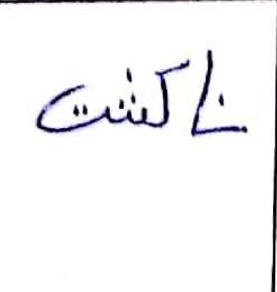 ناکشت